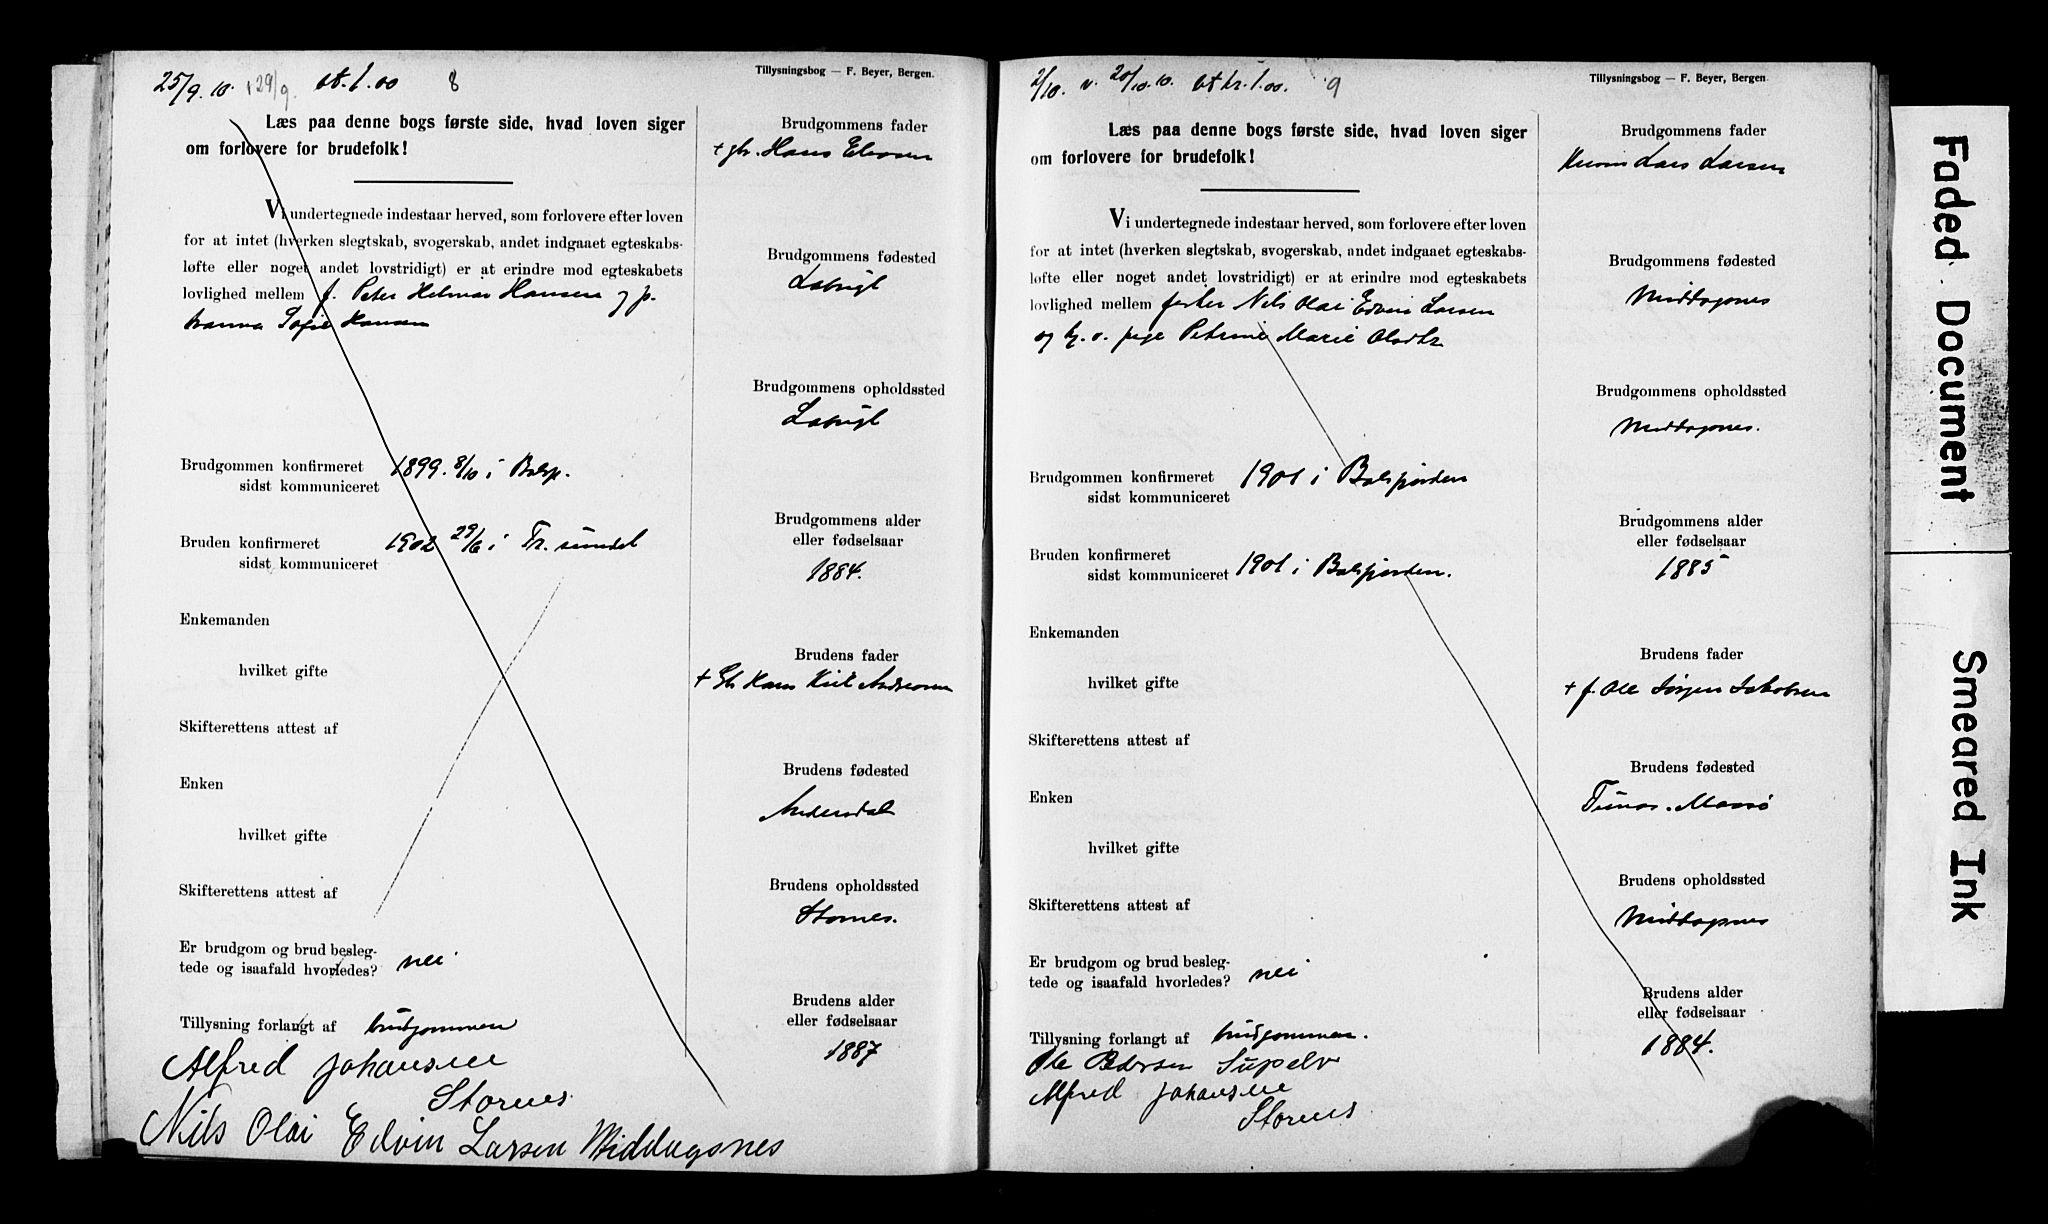 25/9.10. 29/9. at. 1.00 8
Tillysningsbog — F. Beyer, Bergen.
Læs paa denne bogs første side, hvad loven siger
om forlovere for brudefolk!
Vi undertegnede indestaar herved, som forlovere efter loven
for at intet (hverken slegtskab, svogerskab, andet indgaaet egteskabs-
løfte eller noget andet lovstridigt) er at erindre mod egteskabets
lovlighed mellem f. Peter Helmar Hansen og p.
Sofie Hansen
Brudgommen konfirmeret 1899. 8/10 i Balsf.
sidst kommuniceret
Bruden konfirmeret 1902 29/6 i Tr. sundet
sidst kommuniceret
Enkemanden
hvilket gifte
Skifterettens attest af
Enken
hvilket gifte
Skifterettens attest af
Er brudgom og brud besleg-
tede og isaafald hvorledes? nei
Tillysning forlangt af brudgommen
Alfred Johansen
Stornes
Nils Olai Edvin Larsen Middagsnes
Brudgommens fader
+ gbr. Hans
Brudgommens fødested
Brudgommens opholdssted
Brudgommens alder
eller fødselsaar
1884.
Brudens fader
+ Hans Kiil Andreasen
Brudens fødested
Andersdal
Brudens opholdssted
Stornes.
Brudens alder
eller fødselsaar
1887
2/10. v. 20/10.10. at kr. 1.00. 9
Tillysningsbog — F. Beyer, Bergen.
Læs paa denne bogs første side, hvad loven siger
om forlovere for brudefolk!
Vi undertegnede indestaar herved, som forlovere efter loven
for at intet (hverken slegtskab, svogerskab, andet indgaaet egteskabs-
løfte eller noget andet lovstridigt) er at erindre mod egteskabets
lovlighed mellem fisker Nils Olai Edvin Larsen
og pige Petrine Marie Olsdtr
Brudgommen konfirmeret 1901 i Balsfjorden
sidst kommuniceret
Bruden konfirmeret
sidst kommuniceret 1901 i Balsfjorden.
Enkemanden
hvilket gifte
Skifterettens attest af
Enken
hvilket gifte
Skifterettens attest af
Er brudgom og brud besleg-
tede og isaafald hvorledes? nei
Tillysning forlangt af brudgommen.
Ole Pedersen
Alfred Johansen
Stornes
Brudgommens fader
Lars Larsen
Brudgommens fødested
Middagsnes
Brudgommens opholdssted
Middagsnes.
Brudgommens alder
eller fødselsaar
1885
Brudens fader
+ f. Ole Jørgen Jakobsen
Brudens fødested
Maasø
Brudens opholdssted
Middagsnes
Brudens alder
eller fødselsaar
1884.
Faded Document
Smeared Ink